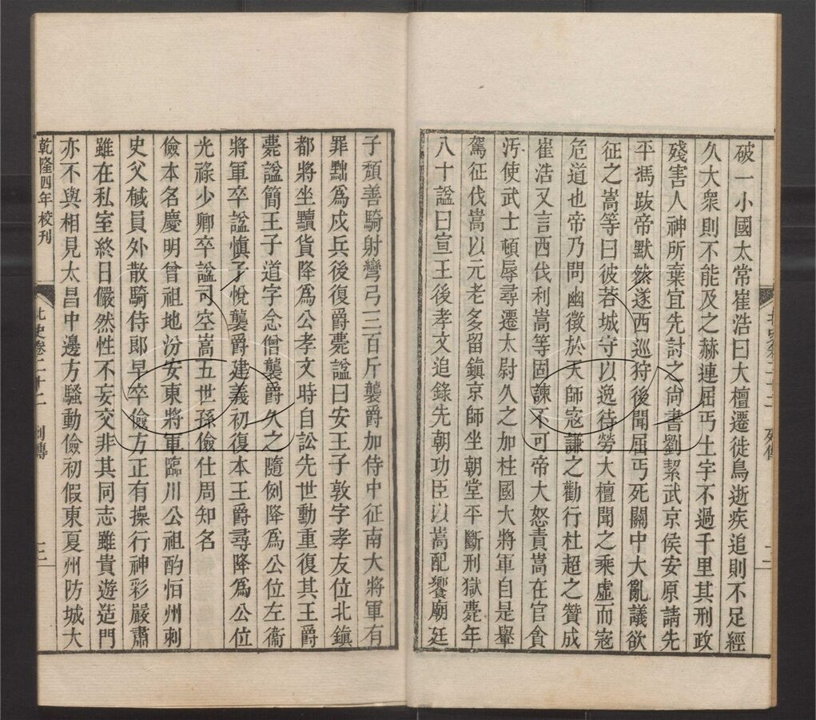 破一小國太常崔浩曰大檀遷徙鳥逝疾追則不足經
久大衆則不能及之赫連屈丐土宇不過千里其刑政
殘害人神所棄宜先討之尙書劉絜武京侯安原請先
平馮跋帝默然遂西巡狩後聞屈丐死關中大亂議欲
征之嵩等曰彼若城守以逸待勞大檀聞之乘虛而宼
危道也帝乃問幽徵於天師宼謙之勸行杜超之贊成
崔浩又言西伐利嵩等固諫不可帝大怒責嵩在官貪
汚使武士頓辱尋遷太尉久之加柱國大將軍自是轝
駕征伐嵩以元老多留鎭京師坐朝堂平斷刑獄薨年
八十諡曰宣王後孝文追錄先朝功臣以嵩配饗廟廷
子頽善騎射彎弓三百斤襲爵加侍中征南大將軍有
罪黜爲戍兵後復爵薨諡曰安王子敦字孝友位北鎭
都將坐黷貨降爲公孝文時自訟先世勳重復其王爵
薨諡簡王子道字念僧襲爵久之隨例降爲公位左衞
將軍卒諡愼子悅襲爵建義初復本王爵尋降爲公位
光祿少卿卒諡司空嵩五世孫儉仕周知名
儉本名慶明曾祖地汾安東將軍臨川公祖酌恒州刺
史父戫員外散騎侍郎早卒儉方正有操行神彩嚴肅
雖在私室終日儼然性不妄交非其同志雖貴遊造門
亦不與相見太昌中邊方騷動儉初假東夏州防城大
乾隆四年校刊
北史卷二十二 列傳